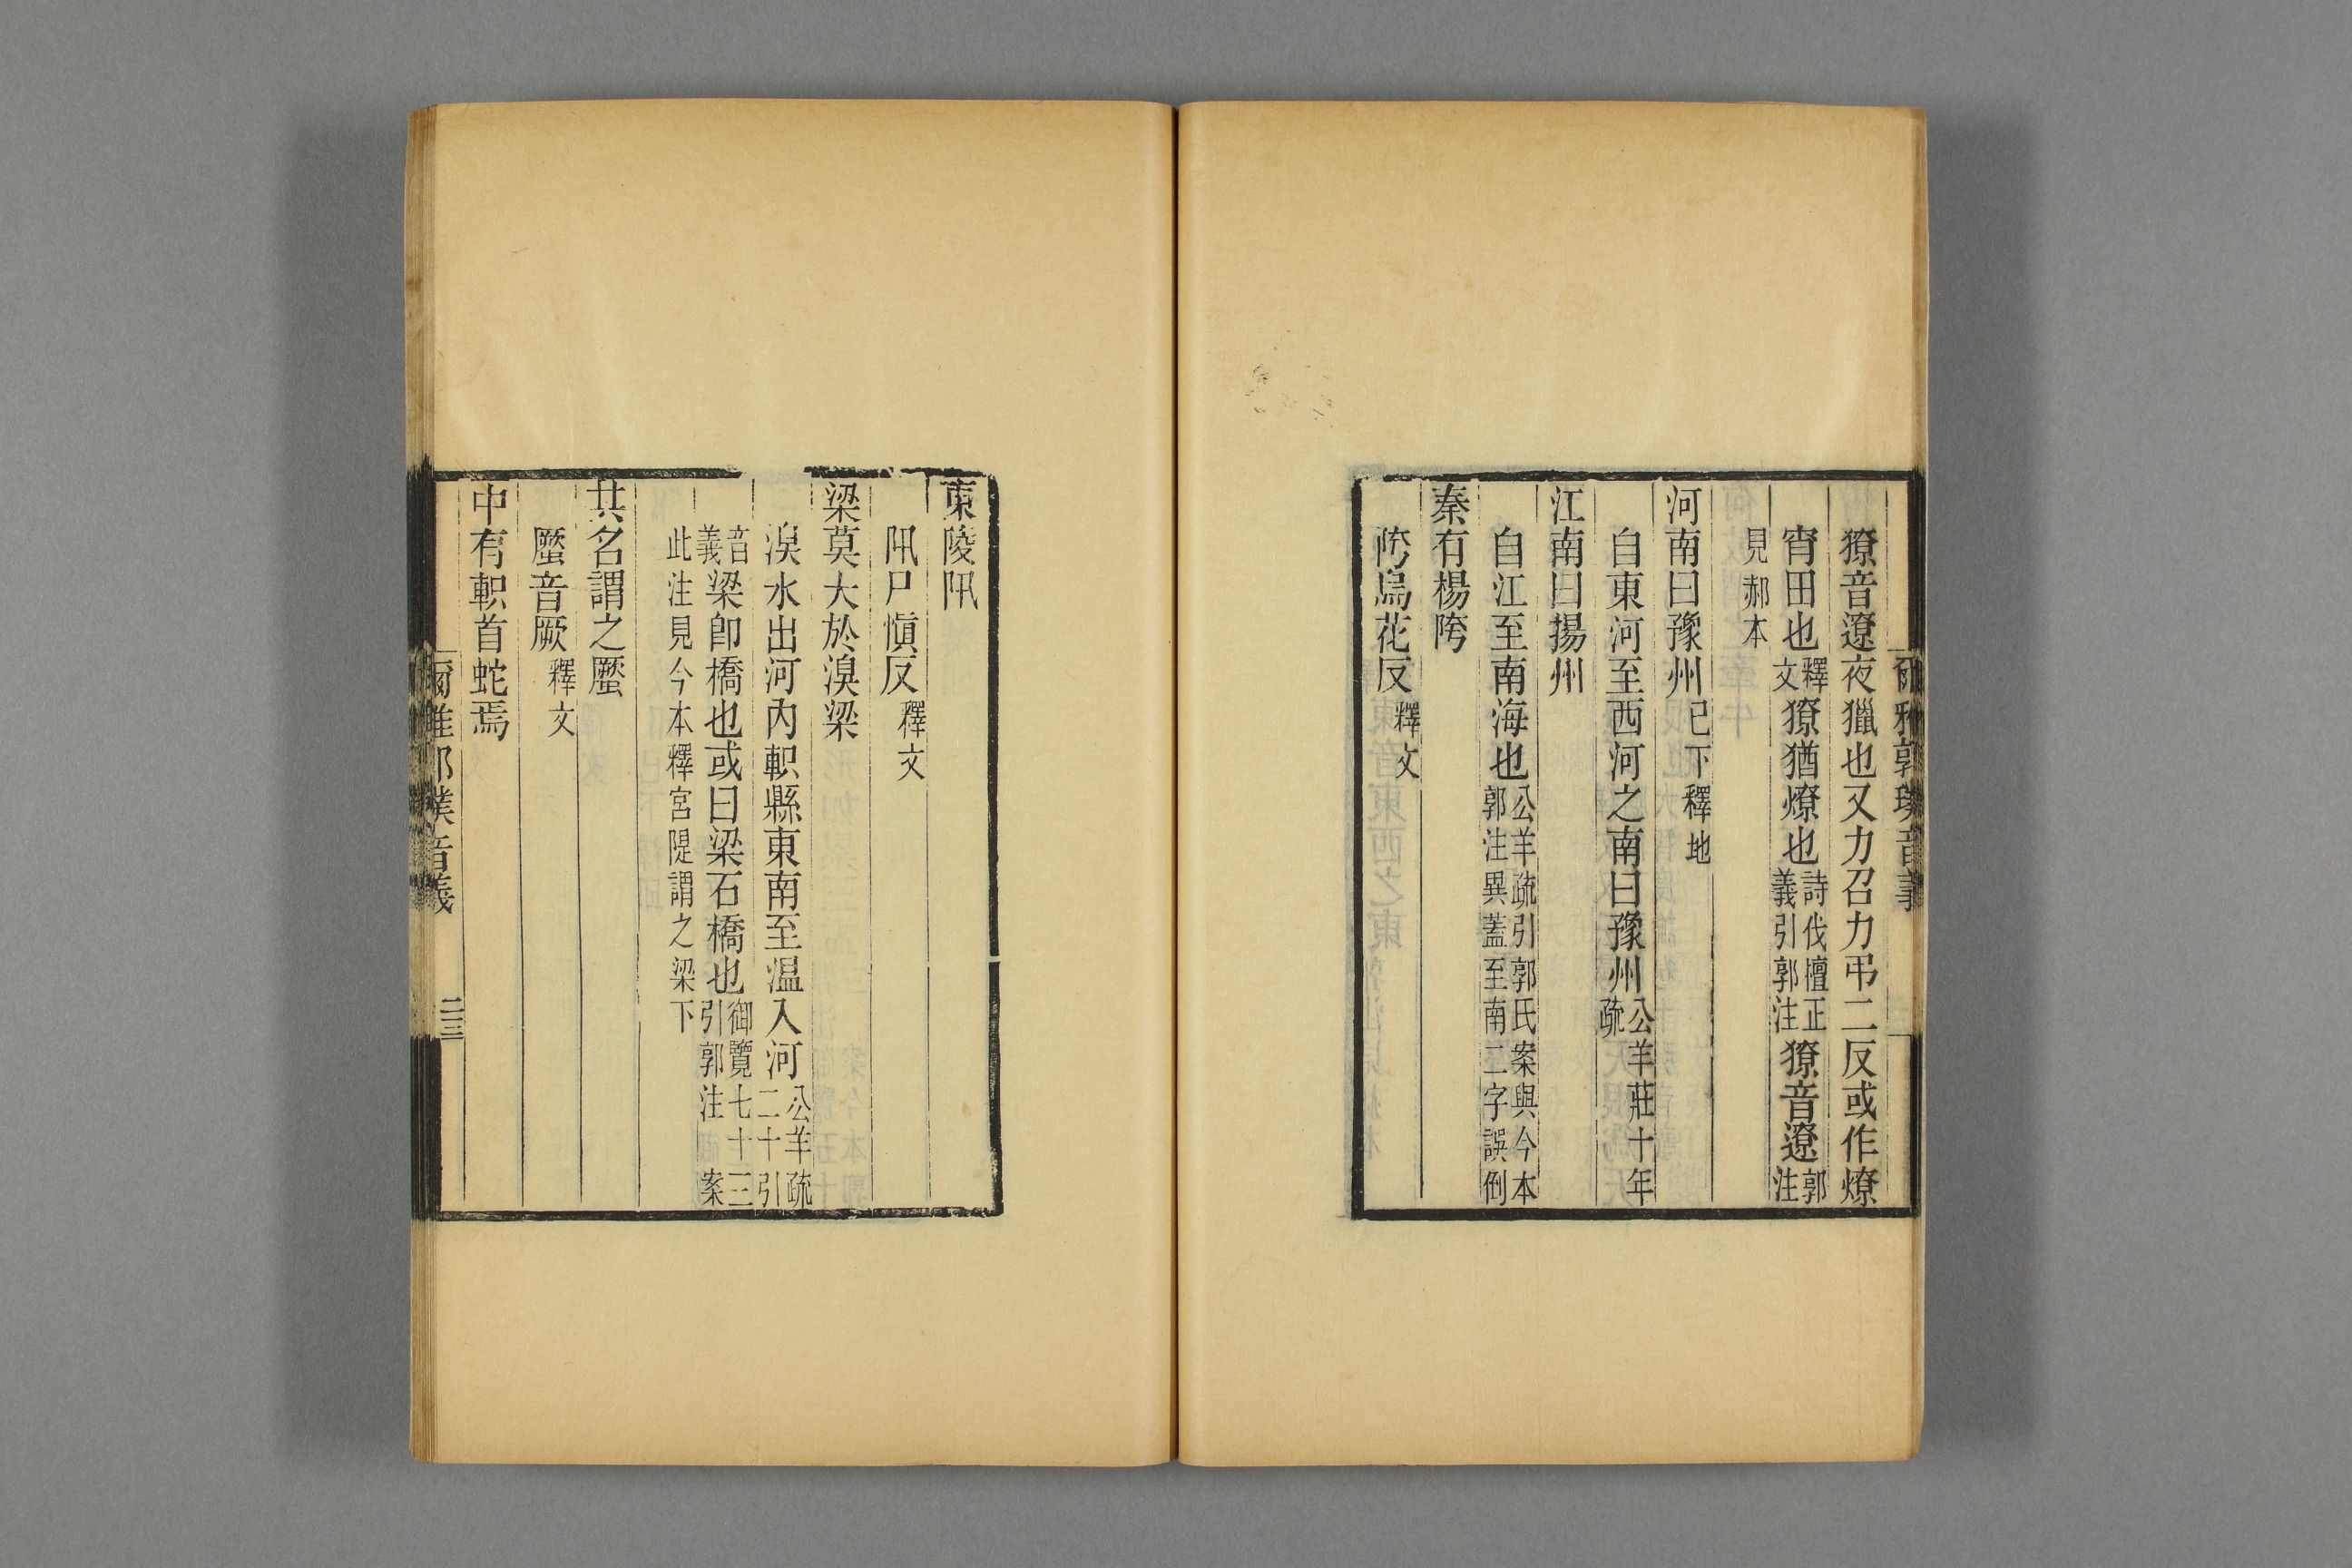 爾雅郭璞音義
獠音遼夜獵也又力召力弔二反或作燎
宵田也釋文獠猶燎也詩伐檀正義引郭注獠音遼郭注
見郝本
河南曰豫州已下釋地
自東河至西河之南曰豫州公羊莊十年疏
江南曰揚州
自江至南海也公羊疏引郭氏案與今本郭注異蓋至南二字誤倒
秦有楊陓
陓烏花反釋文
東陵阠
阠尸慎反釋文
梁莫大於湨梁
湨水出河內軹縣東南至温入河公羊疏二十引
音義梁卽橋也或曰梁石橋也御覽七十三引郭注案
此注見今本釋宮隄謂之梁下
其名謂之蟨
蟨音厥釋文
中有軹首蛇焉
爾雅郭璞音義
二三